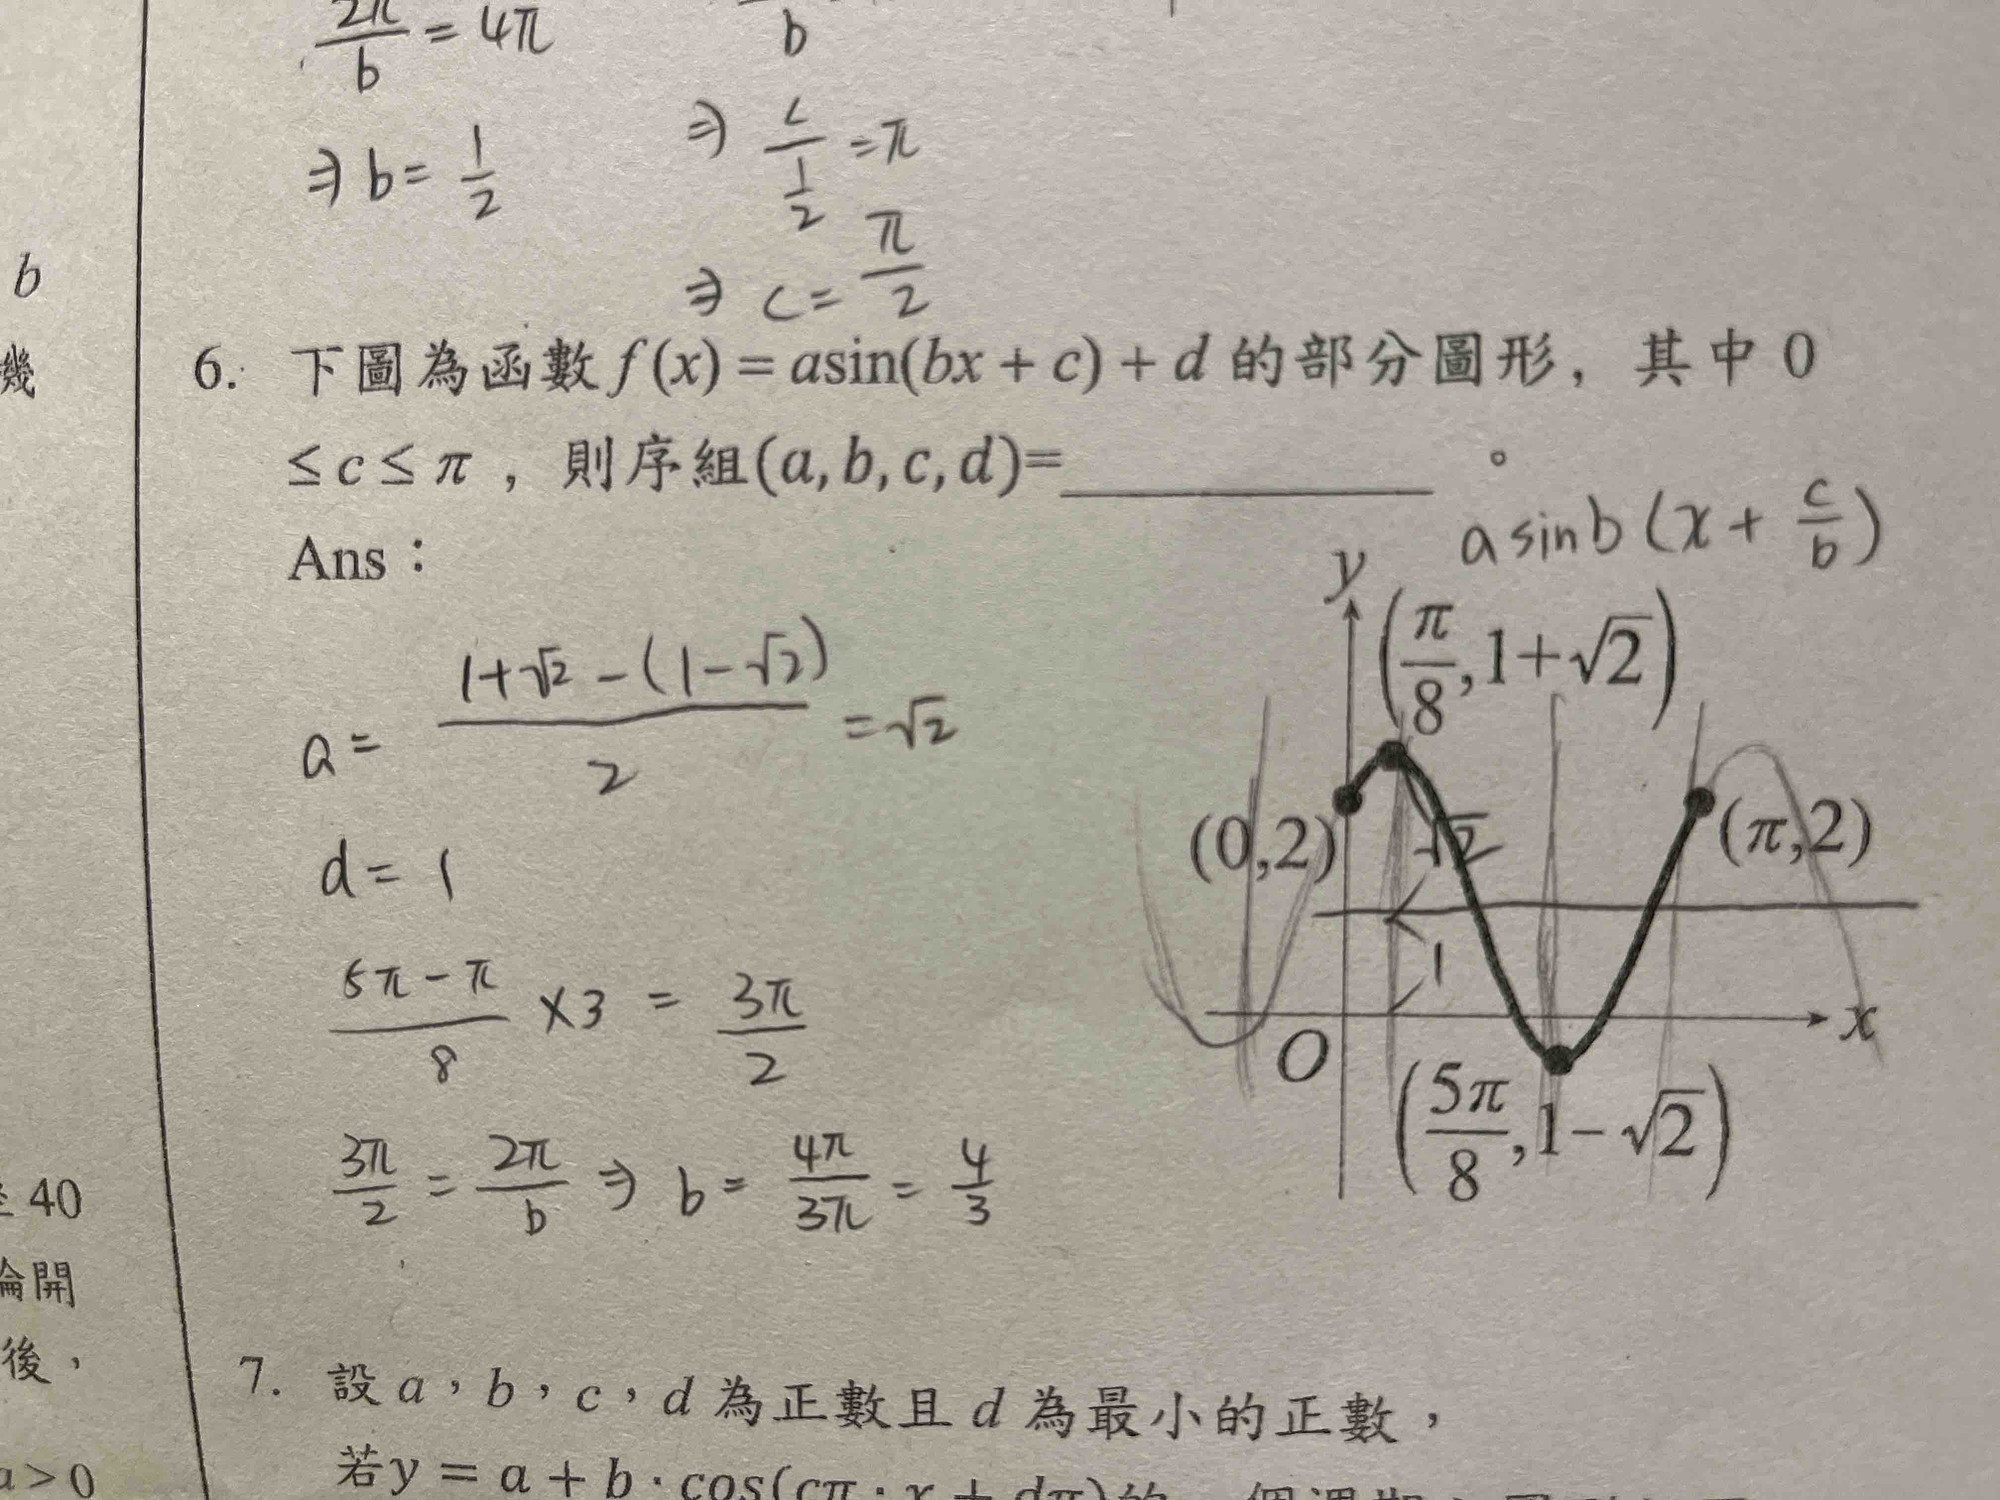 2π/b = 4π
b
⇒ b = 1/2
⇒ c/(1/2) = π
⇒ c = π/2
b
機
6. 下圖為函數 f(x) = asin(bx + c) + d 的部分圖形，其中 0
≤ c ≤ π，則序組(a, b, c, d)=__________。
Ans：
a sin b (x + c/b)
a = (1+√2 - (1-√2))/2 = √2
d = 1
(5π - π)/8 × 3 = 3π/2
3π/2 = 2π/b ⇒ b = 4π/3π = 4/3
y
(π/8, 1+√2)
(0,2)
√2
(π,2)
1
O
x
(5π/8, 1-√2)
40
開
後，
a > 0
7. 設 a，b，c，d 為正數且 d 為最小的正數，
若y = a + b · cos(cπ · x + dπ)的